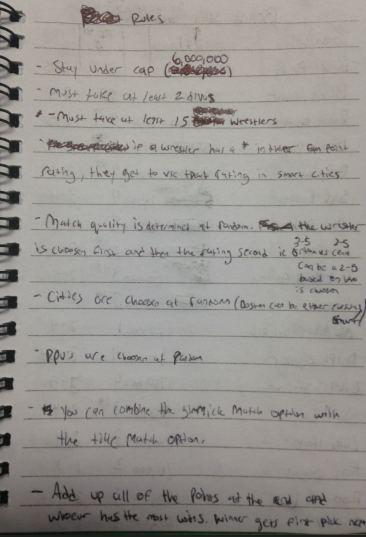 Rules
6,000,000
- Stay under cap
- Must take at least 2 divas
* - Must take at least 15 wrestlers
- if a wrestler has a * in their fan point
rating, they get to use that rating in smart cities
- Match quality is determined at random. the wrestler
is chosen first and then the rating second
3.5 2.5
can be 2-5
based on who
is chosen
- Cities are chosen at random (Boston can be either casual/
smart)
- PPV's are chosen at random
- You can combine the gimmick match option with
the title match option.
- Add up all of the points at the end and
whoever has the most wins. Winner gets first pick next